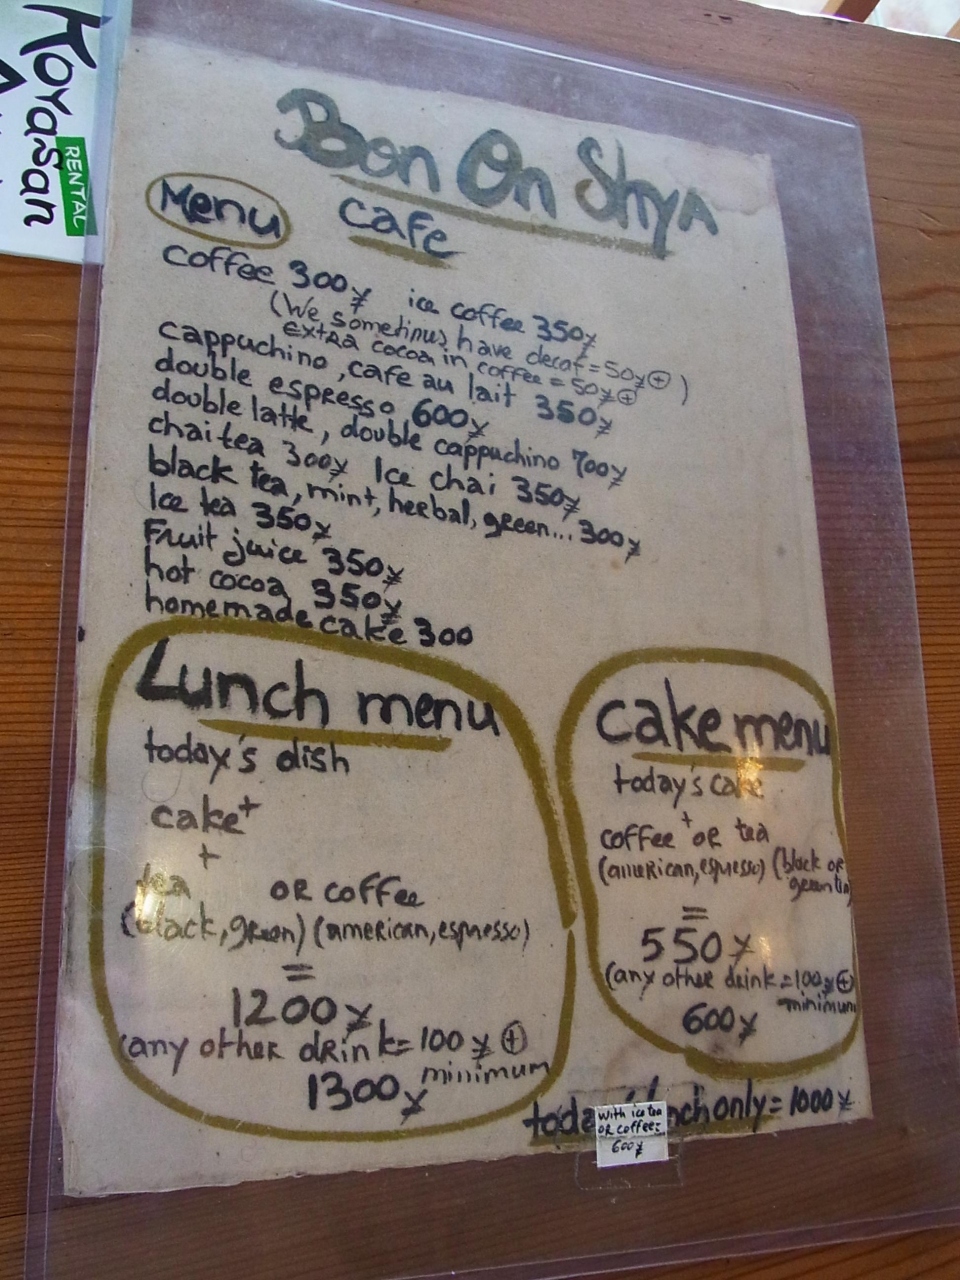 Koyasan
RENTAL
Bon On ShyA
Menu cafe
coffee 300¥ ice coffee 350¥
(We sometimes have decaf = 50¥ ⊕ )
extra cocoa in coffee = 50¥ ⊕
cappuchino, cafe au lait 350¥
double espresso 600¥
double latte, double cappuchino 700¥
chai tea 300¥ Ice chai 350¥
black tea, mint, herbal, green... 300¥
Ice tea 350¥
Fruit juice 350¥
hot cocoa 350¥
homemade cake 300
Lunch menu
today's dish
cake +
+
tea OR coffee
(black, green) (american, espresso)
=
1200¥
(any other drink = 100¥ ⊕
minimum
1300¥
cake menu
today's cake
+
coffee or tea
(american, espresso) (black or
green tea
=
550¥
(any other drink = 100¥ ⊕
minimum
600¥
only = 1000¥
with ice tea
OR coffee =
600¥